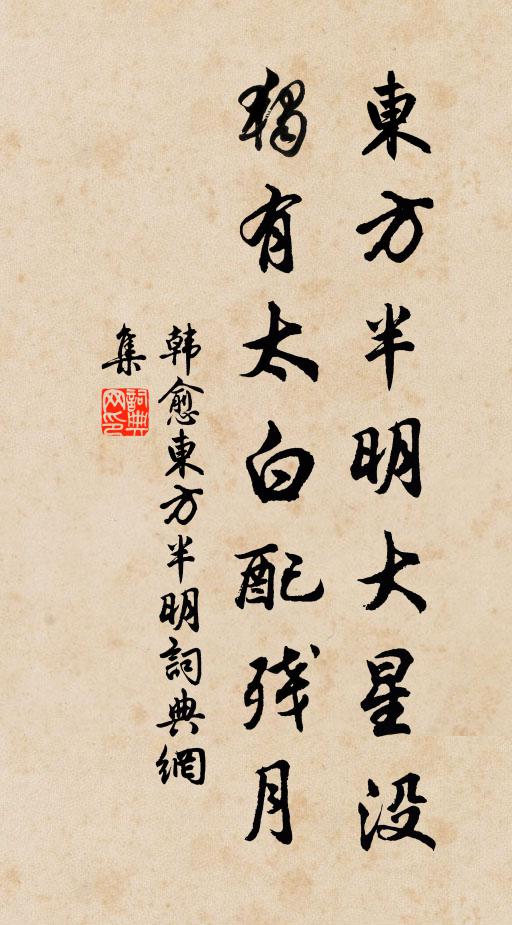 東方半明大星没
獨有太白配残月
韩愈東方半明詞典網
集
詞典
网印